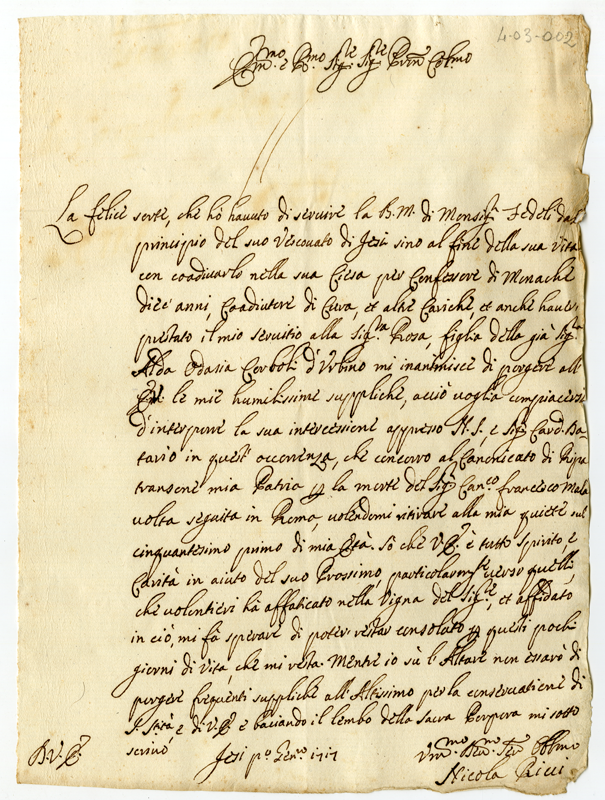 4-03-002
Em.mo e R.mo Sig.re Sig.re Prīn Col.mo
La felice sorte, che hò hauuto di seruire la B.M. di Monsig.r Fedeli dal
principio del suo Vescouato di Jesi sino al fine della sua Vita
con coadiuuarlo nella sua Ciesa per Confessore di Monache
diece anni, Coadiutore di Cura, et altre Cariche, et anche hauer
prestato il mio seruitio alla Sig.ra Rosa, figlia della già Sig.ra
Alda Odasia Corboli d'Urbino mi inanimisce di porgere all'
le mie humilissime suppliche, acciò uoglia compiacersi
d'interporre la sua intercessione appresso N.S. e Sig.r Card. Da-
tario in quest' occorrenza, che concorro al Canonicato di Ripa
transone mia Patria p la morte del Sig.r Can.co Francesco Mala
uolta seguita in Roma, uolendomi ritirare alla mia quiete sul
cinquantesimo primo di mia Età. Sò che V.E. è tutto spirito e
Carità in aiuto del suo Prossimo particolarm.te uerso quelli,
che uolentieri hà affaticato nella Vigna del Sig.re, et affidato
in ciò, mi fà sperare di poter restar consolato p questi pochi
giorni di Vita, che mi resta. Mentre io sù l'Altare non essarò di
porgere frequenti suppliche all'Altissimo per la conseruatione di
S. Stità, e di V.E. e baciando il lembo della Sacra Porpora mi sotto
scriuo
D.V.E. Jesi p.o Gen.ro 1717
Um.mo Deu.mo Ser.re Obl.mo
Nicola Ricci